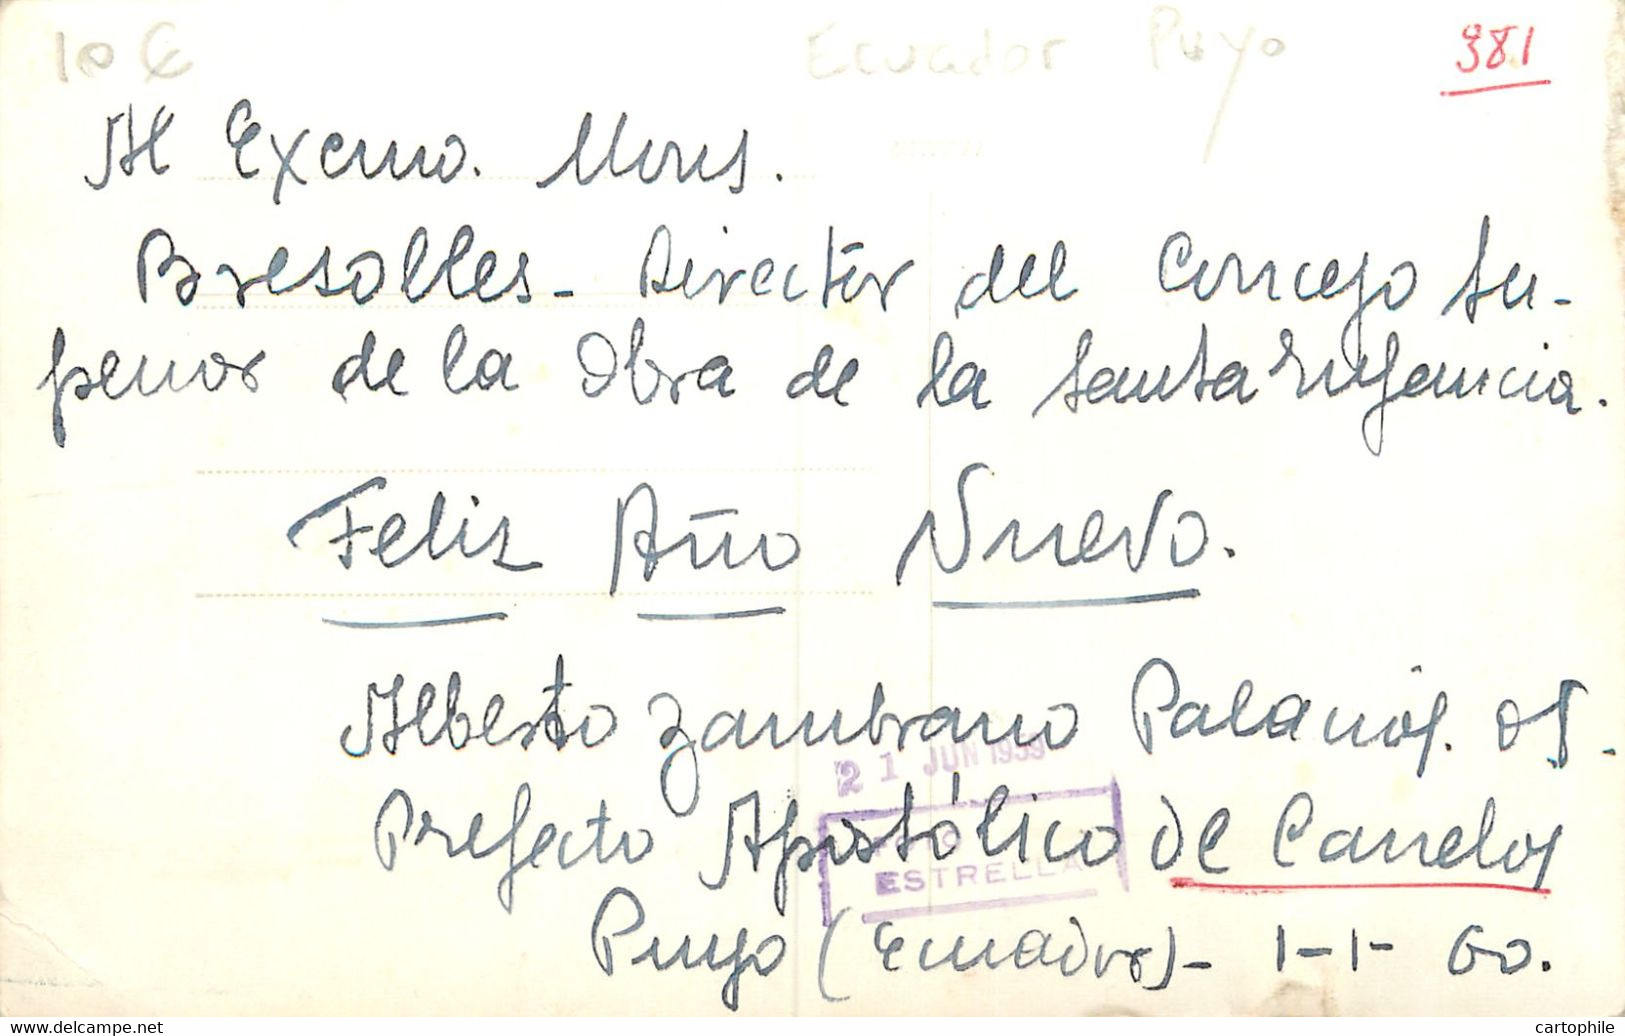 10 €
Ecuador Puyo
381
Al Excmo. Mons.
Bresolles - Director del Concejo Su-
perior de la Obra de la Santa Infancia.
Feliz Año Nuevo.
Alberto Zambrano Palacios. OP.
Prefecto Apostólico de Canelos
Puyo (Ecuador) - 1-1- 60.
21 JUN 1959
FOTO
ESTRELLA
cartophile